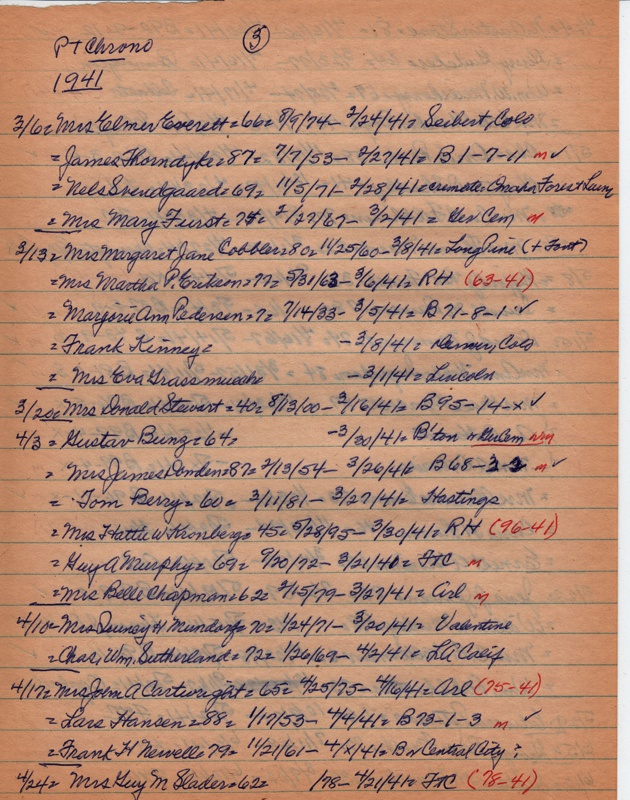 P+Chrono ③
1941
3/6= Mrs Elmer Everett=66= 8/9/74- 2/24/41= Seibert, Colo
=James Thorndyke=87= 7/7/53- 2/27/41= B 1-7-11 m ✓
=Nels Svendgaard=69= 11/5/71- 2/28/41= cremate Omaha Forest Lawn
= Mrs Mary Furst= 74= 2/27/67- 3/2/41= Ger Cem m
3/13= Mrs Margaret Jane Cobbler=80= 11/25/60-3/8/41= Long Pine (+Font)
=Mrs Martha P. Erikson=77= 5/31/63- 3/6/41= RH (63-41)
= Marjorie Ann Pedersen=7= 7/14/33- 3/5/41= B71-8-1 ✓
= Frank Kinney= -3/8/41= Denver, Colo
= Mrs Eva Grassmueck -3/1/41= Lincoln
3/20= Mrs Donald Stewart=40= 8/13/00- 3/16/41= B95-14-x ✓
4/3 = Gustav Bunz=64= -3/20/41= B'ton Ger Cem
= Mrs James Donden=87= 2/13/54- 3/26/41= B68-3-2 m ✓
= Tom Berry=60= 3/11/81- 3/27/41= Hastings
= Mrs Hattie W Kronberg= 45= 5/28/95- 3/30/41= RH (96-41)
= Guy A Murphy= 69= 9/20/72- 3/21/41= FTC m
=Mrs Belle Chapman=62= 2/15/79- 3/27/41= Arl m
4/10= Mrs Quincy H Mundorf= 70= 1/24/71- 3/20/41= Valentine
=Chas, Wm. Sutherland= 72= 1/26/69- 4/2/41= LA Calif
4/17= Mrs John A Cartwright=65= 4/25/75- 4/16/41= Arl (75-41)
= Lars Hansen=88= 1/17/53- 4/4/41= B73-1-3 m ✓
=Frank H Newell=79= 11/21/61- 4/x/41= B Central City?
4/24= Mrs Guy M Slader=62= /78- 4/21/41= FTC (78-41)